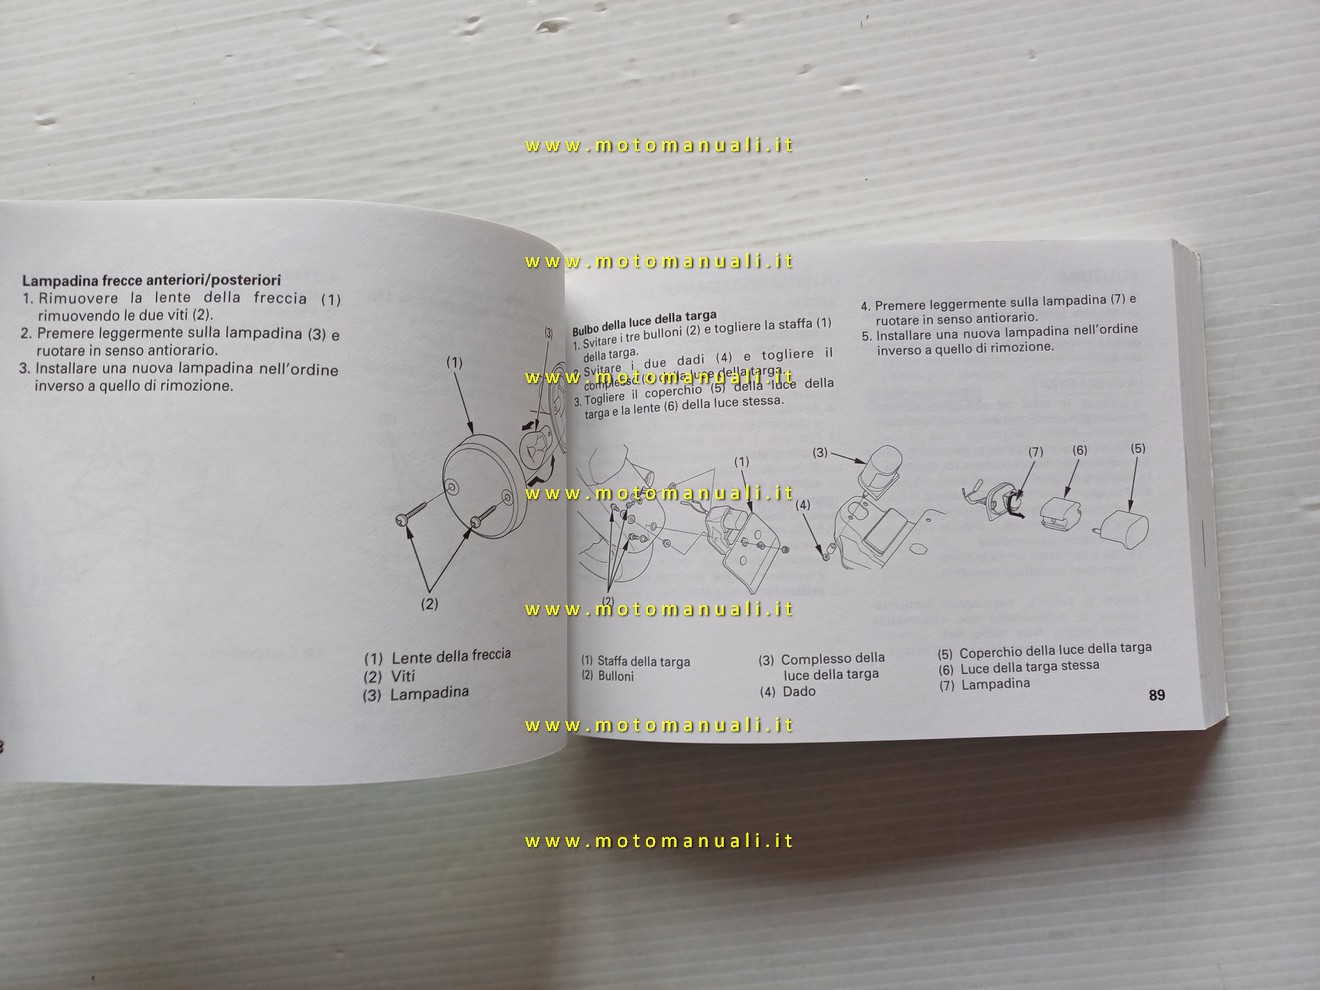 www.motomanuali.it
www.motomanuali.it
Lampadina frecce anteriori/posteriori
1. Rimuovere la lente della freccia (1)
rimuovendo le due viti (2).
2. Premere leggermente sulla lampadina (3) e
ruotare in senso antiorario.
3. Installare una nuova lampadina nell'ordine
inverso a quello di rimozione.
(1)
(3)
(2)
(1) Lente della freccia
(2) Viti
(3) Lampadina
Bulbo della luce della targa
1. Svitare i tre bulloni (2) e togliere la staffa (1)
della targa.
2. Svitare i due dadi (4) e togliere il
complesso (3) della luce della targa.
3. Togliere il coperchio (5) della luce della
targa e la lente (6) della luce stessa.
4. Premere leggermente sulla lampadina (7) e
ruotare in senso antiorario.
5. Installare una nuova lampadina nell'ordine
inverso a quello di rimozione.
www.motomanuali.it
(1)
(2)
(3)
(4)
(7)
(6)
(5)
www.motomanuali.it
www.motomanuali.it
(1) Staffa della targa
(2) Bulloni
(3) Complesso della
luce della targa
(4) Dado
(5) Coperchio della luce della targa
(6) Luce della targa stessa
(7) Lampadina
89
www.motomanuali.it
www.motomanuali.it